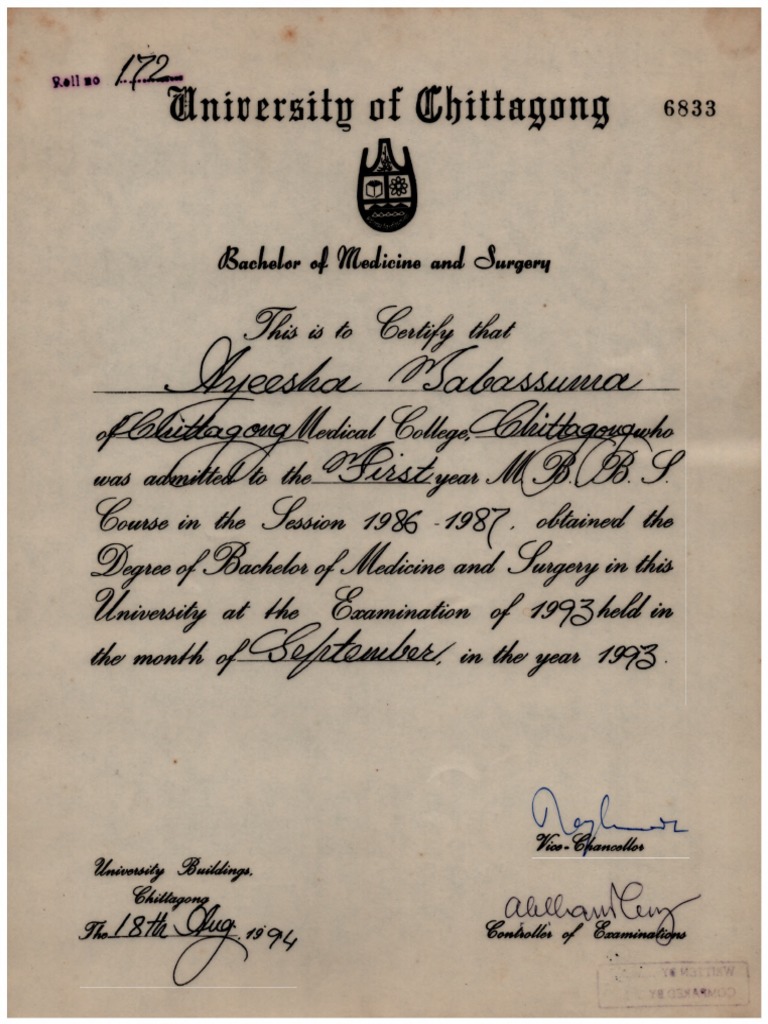 Roll no 172
University of Chittagong 6833
Bachelor of Medicine and Surgery
This is to Certify that
Ayeesha Tabassuma
of Chittagong Medical College, Chittagong who
was admitted to the First year M. B. B. S.
Course in the Session 1986 - 1987, obtained the
Degree of Bachelor of Medicine and Surgery in this
University at the Examination of 1993 held in
the month of September, in the year 1993.
Vice-Chancellor
University Buildings,
Chittagong
The 18th Aug. 1994
Controller of Examinations
WRITTEN BY
COMPARED BY